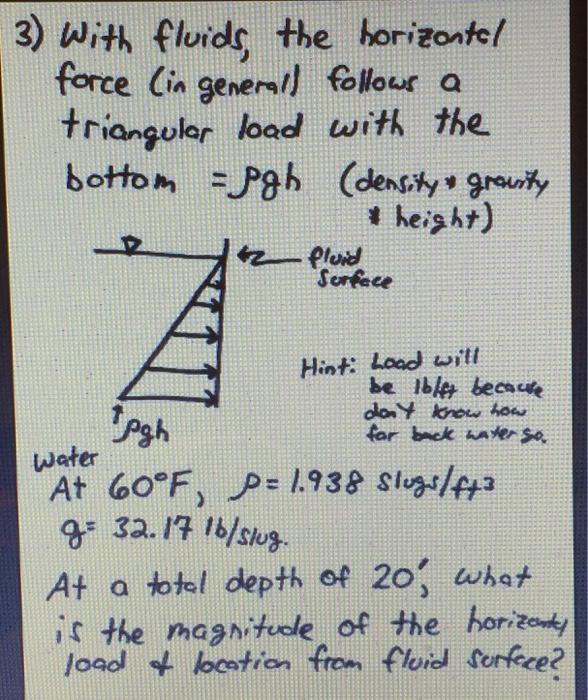 3) With fluids, the horizontal
force (in general) follows a
triangular load with the
bottom = ρgh (density * gravity
* height)
fluid
Surface
Hint: Load will
be lb/ft because
don't know how
far back water go.
ρgh
Water
At 60°F, ρ = 1.938 slugs/ft3
g = 32.17 lb/slug.
At a total depth of 20', what
is the magnitude of the horizontal
load & location from fluid surface?